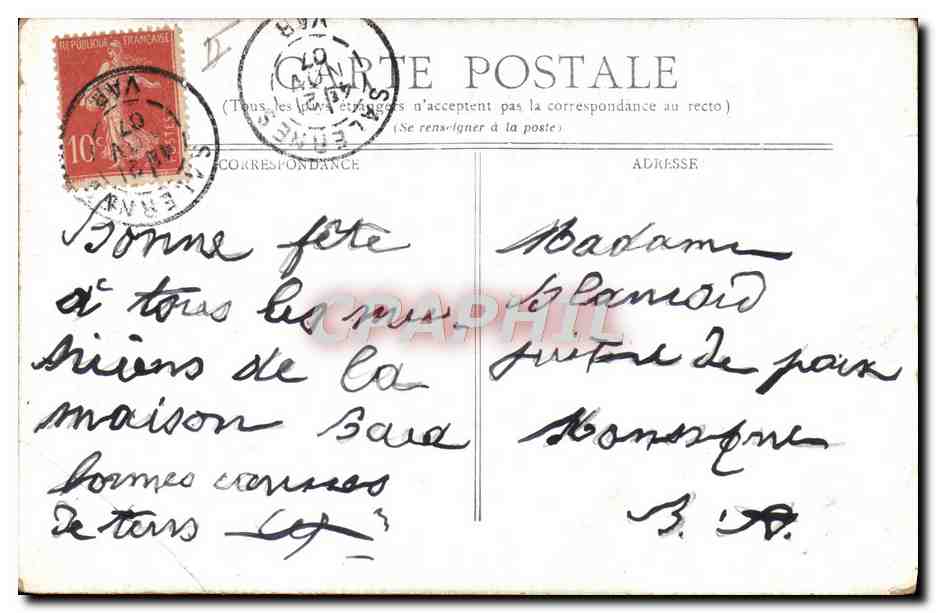 RÉPUBLIQUE FRANÇAISE
10c POSTES
SALERNES
VAR
21 NOV 07
SALERNES
VAR
21 NOV 07
CARTE POSTALE
(Tous les pays étrangers n'acceptent pas la correspondance au recto)
(Se renseigner à la poste)
CORRESPONDANCE
ADRESSE
Bonne fête
à tous les mu-
siciens de la
maison
bonnes caresses
de tous
Madame
justice de paix
B. A.
CPAPHIL